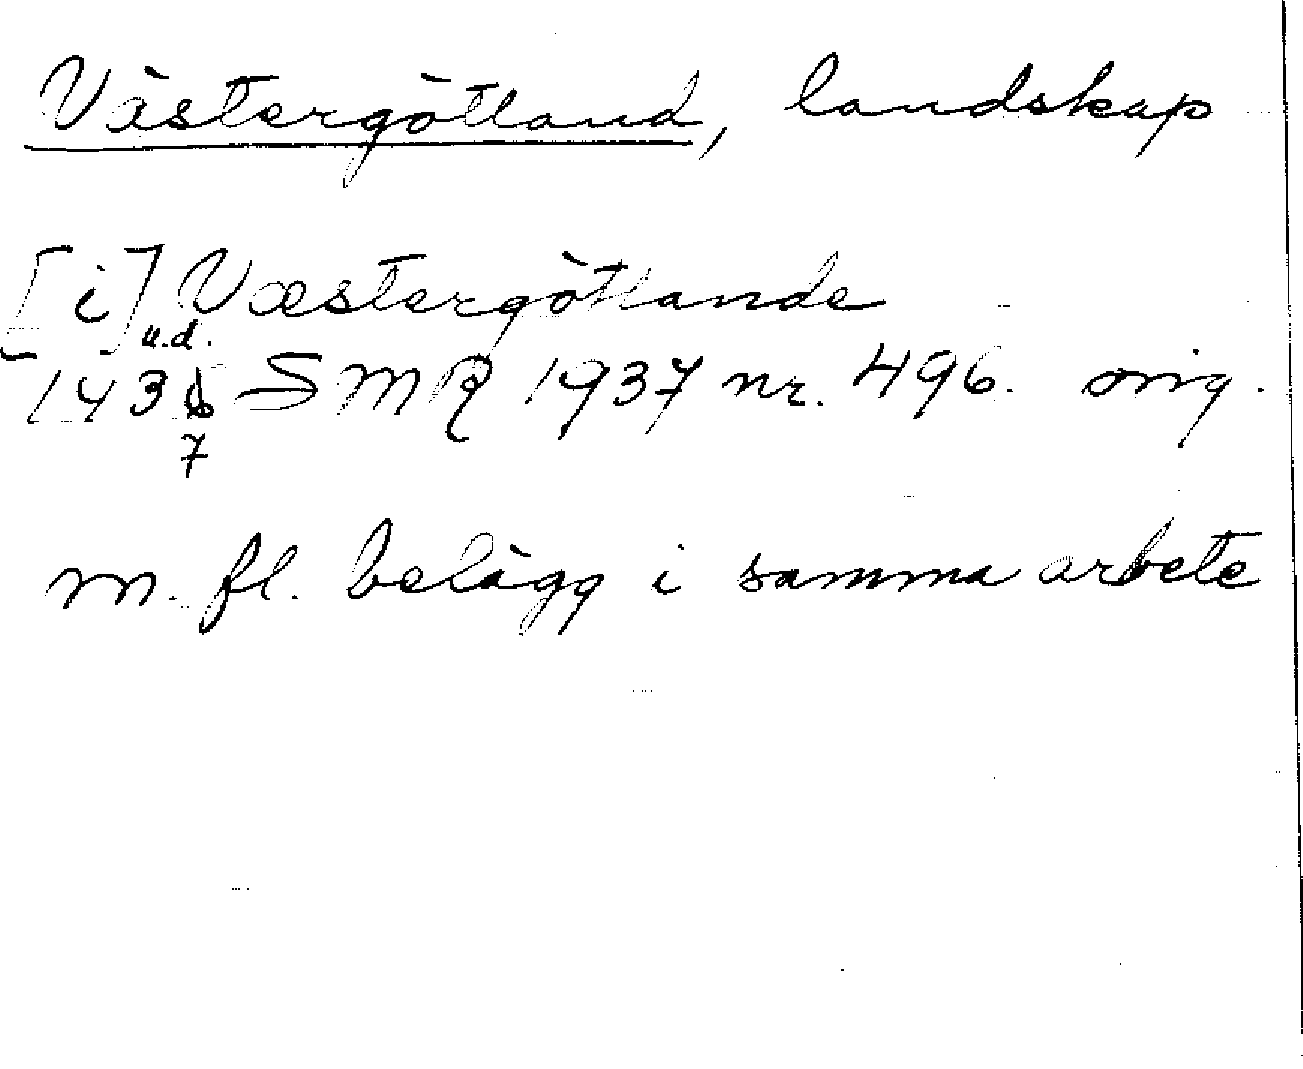 Västergötland, landskap
[i] Væstergötlande
u.d.
1436 SMR 1937 nr. 496. orig.
7
m. fl. belägg i samma arbete